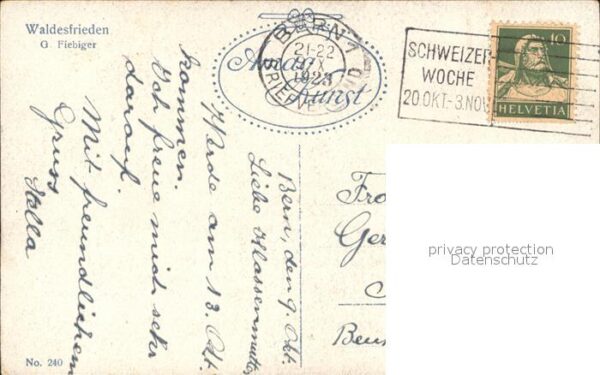 Waldesfrieden
G. Fiebiger
Amag
Kunst
BERN 1
21-22
9.X
1923
BRIEF
SCHWEIZER
WOCHE
20.OKT.-3.NOV
10
HELVETIA
Bern, den 9. Okt.
Liebe Klassenmutter
Werde am 13. Okt.
kommen.
Ich freue mich sehr
darauf.
Mit freundlichem
Gruss
Stella
Ger
Beun
privacy protection
Datenschutz
No. 240